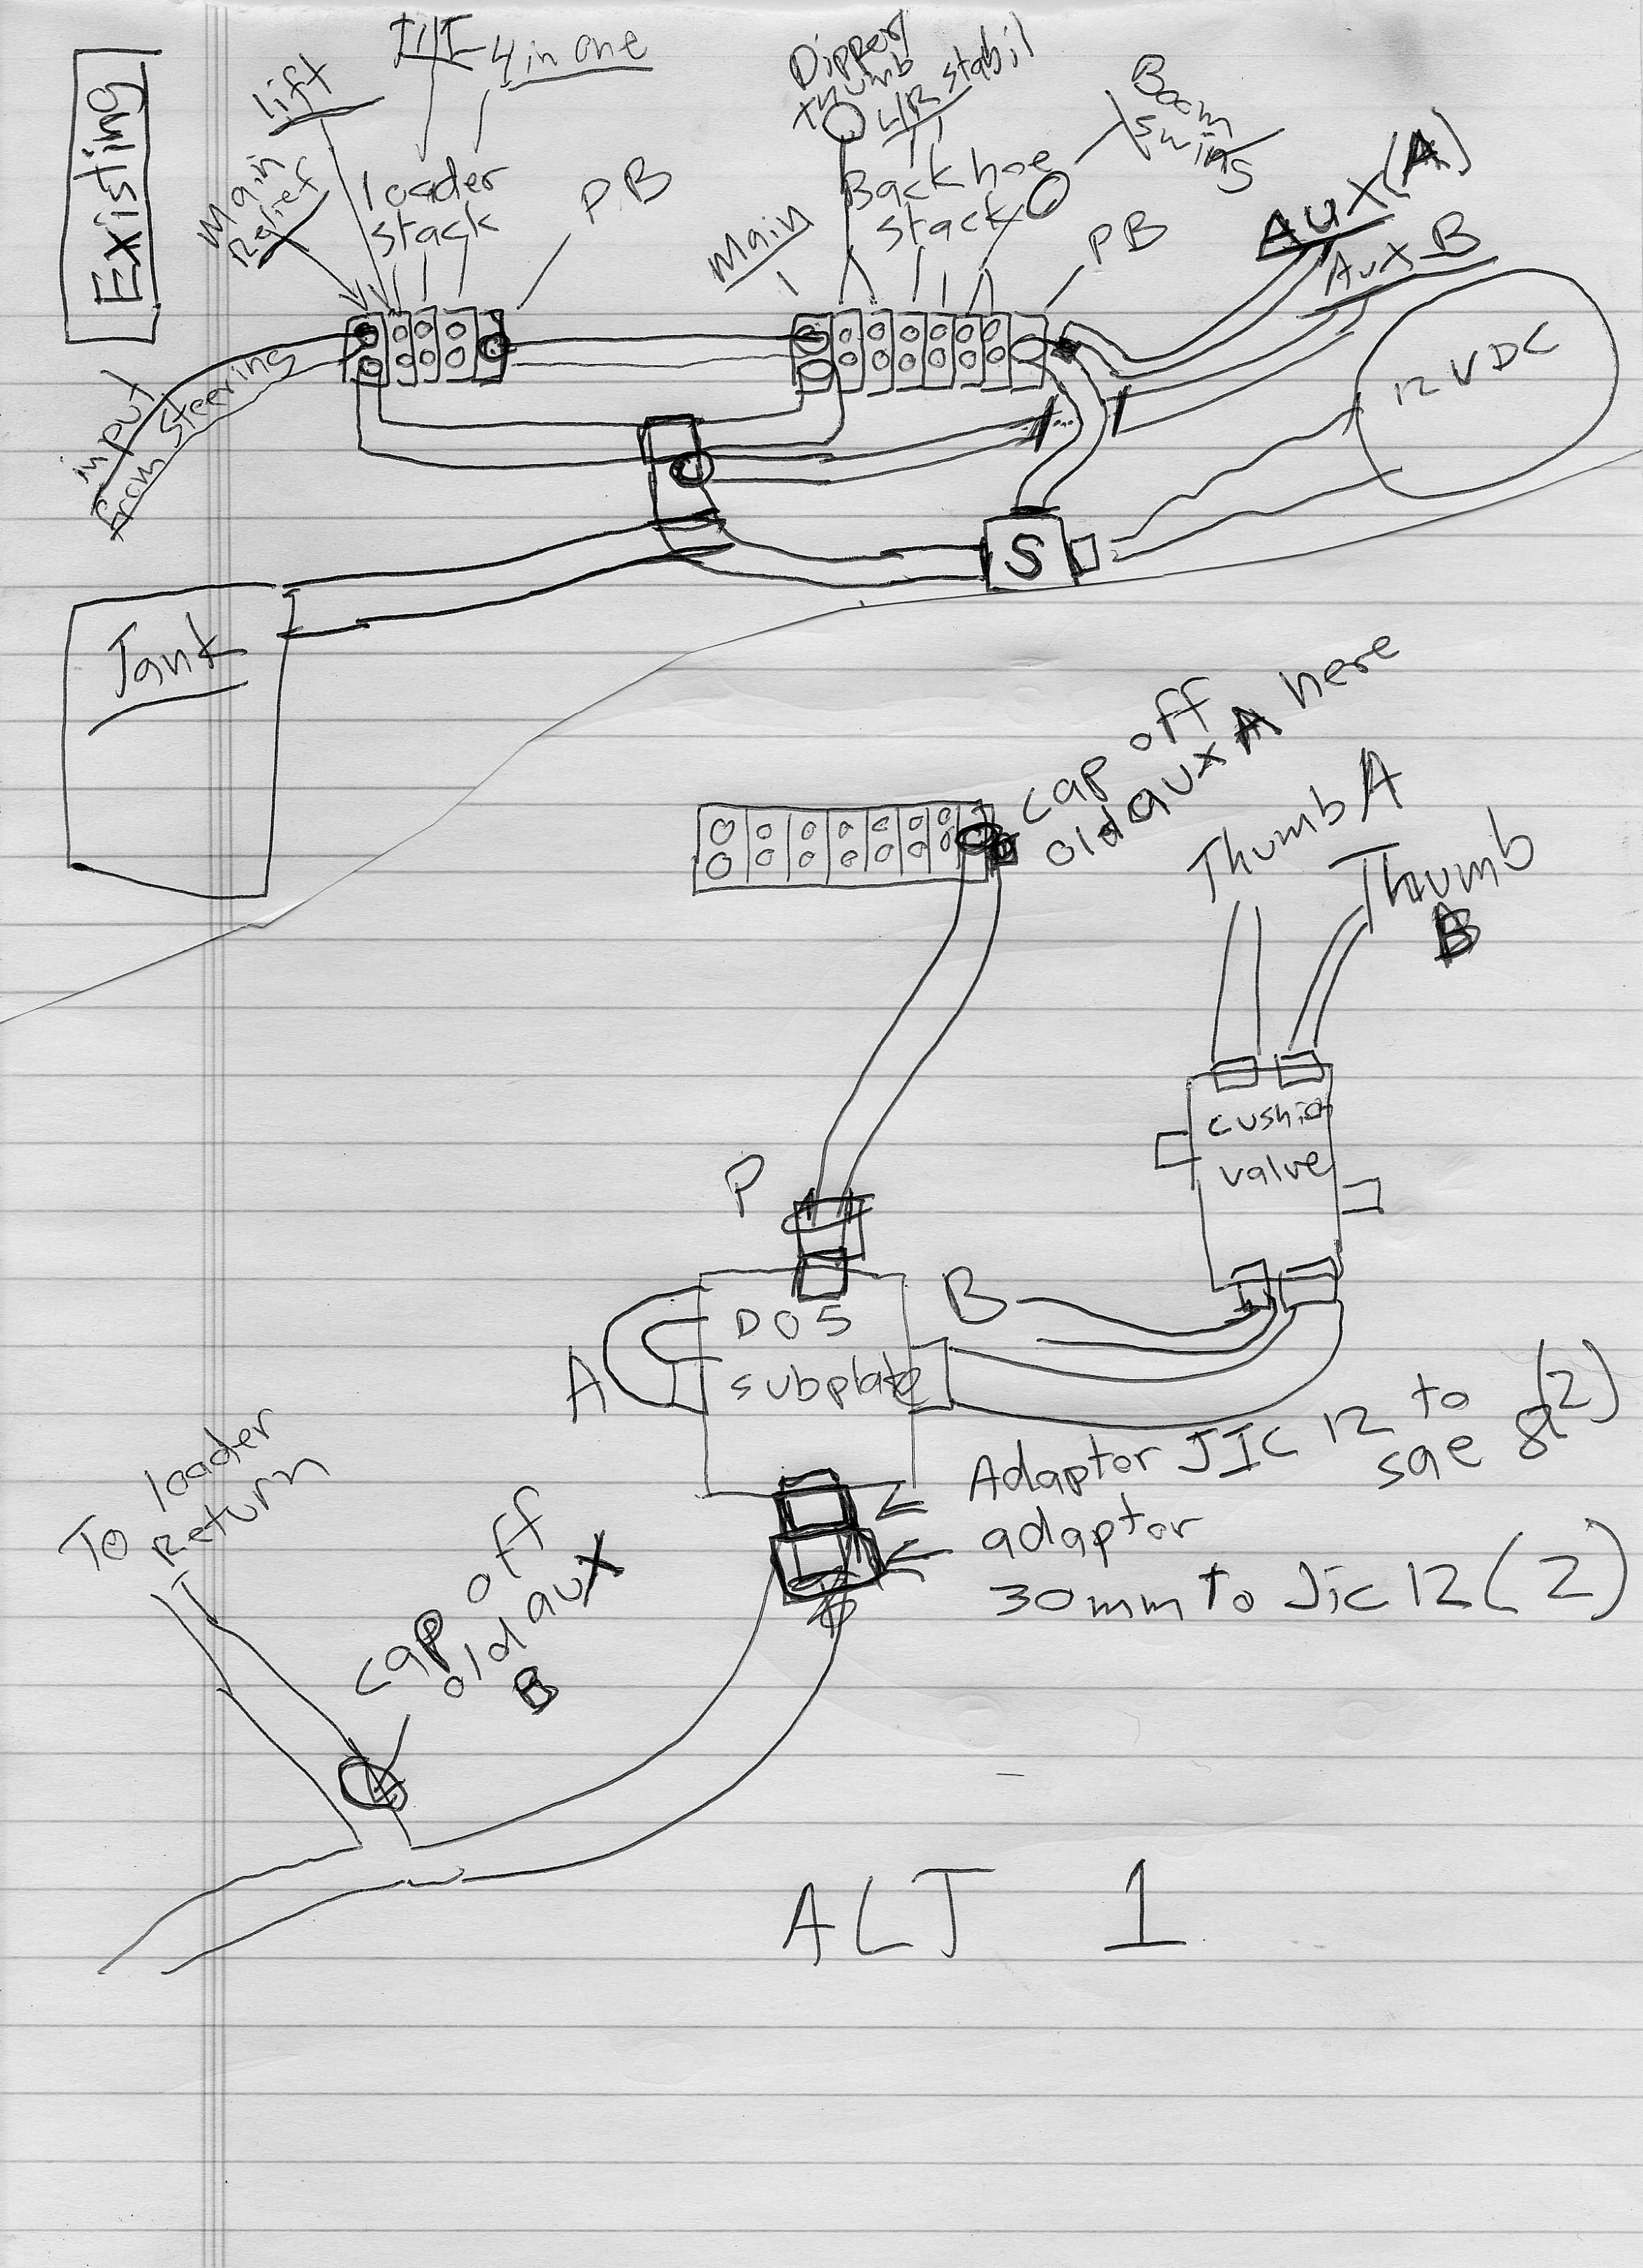 Existing
lift
Tilt
4 in one
Main
Relief
loader
stack
PB
Dipper
thumb
L/R stabil
Boom
swing
Backhoe
stack
Main
PB
Aux (A)
Aux B
input
from steering
12 VDC
S
Tank
cap off
old aux A here
Thumb A
Thumb
B
cushion
valve
P
DO5
subplate
A
B
Adaptor JIC 12 to
sae 8 (2)
adaptor
30mm to Jic 12 (2)
To loader
Return
cap off
old aux
B
ALT 1